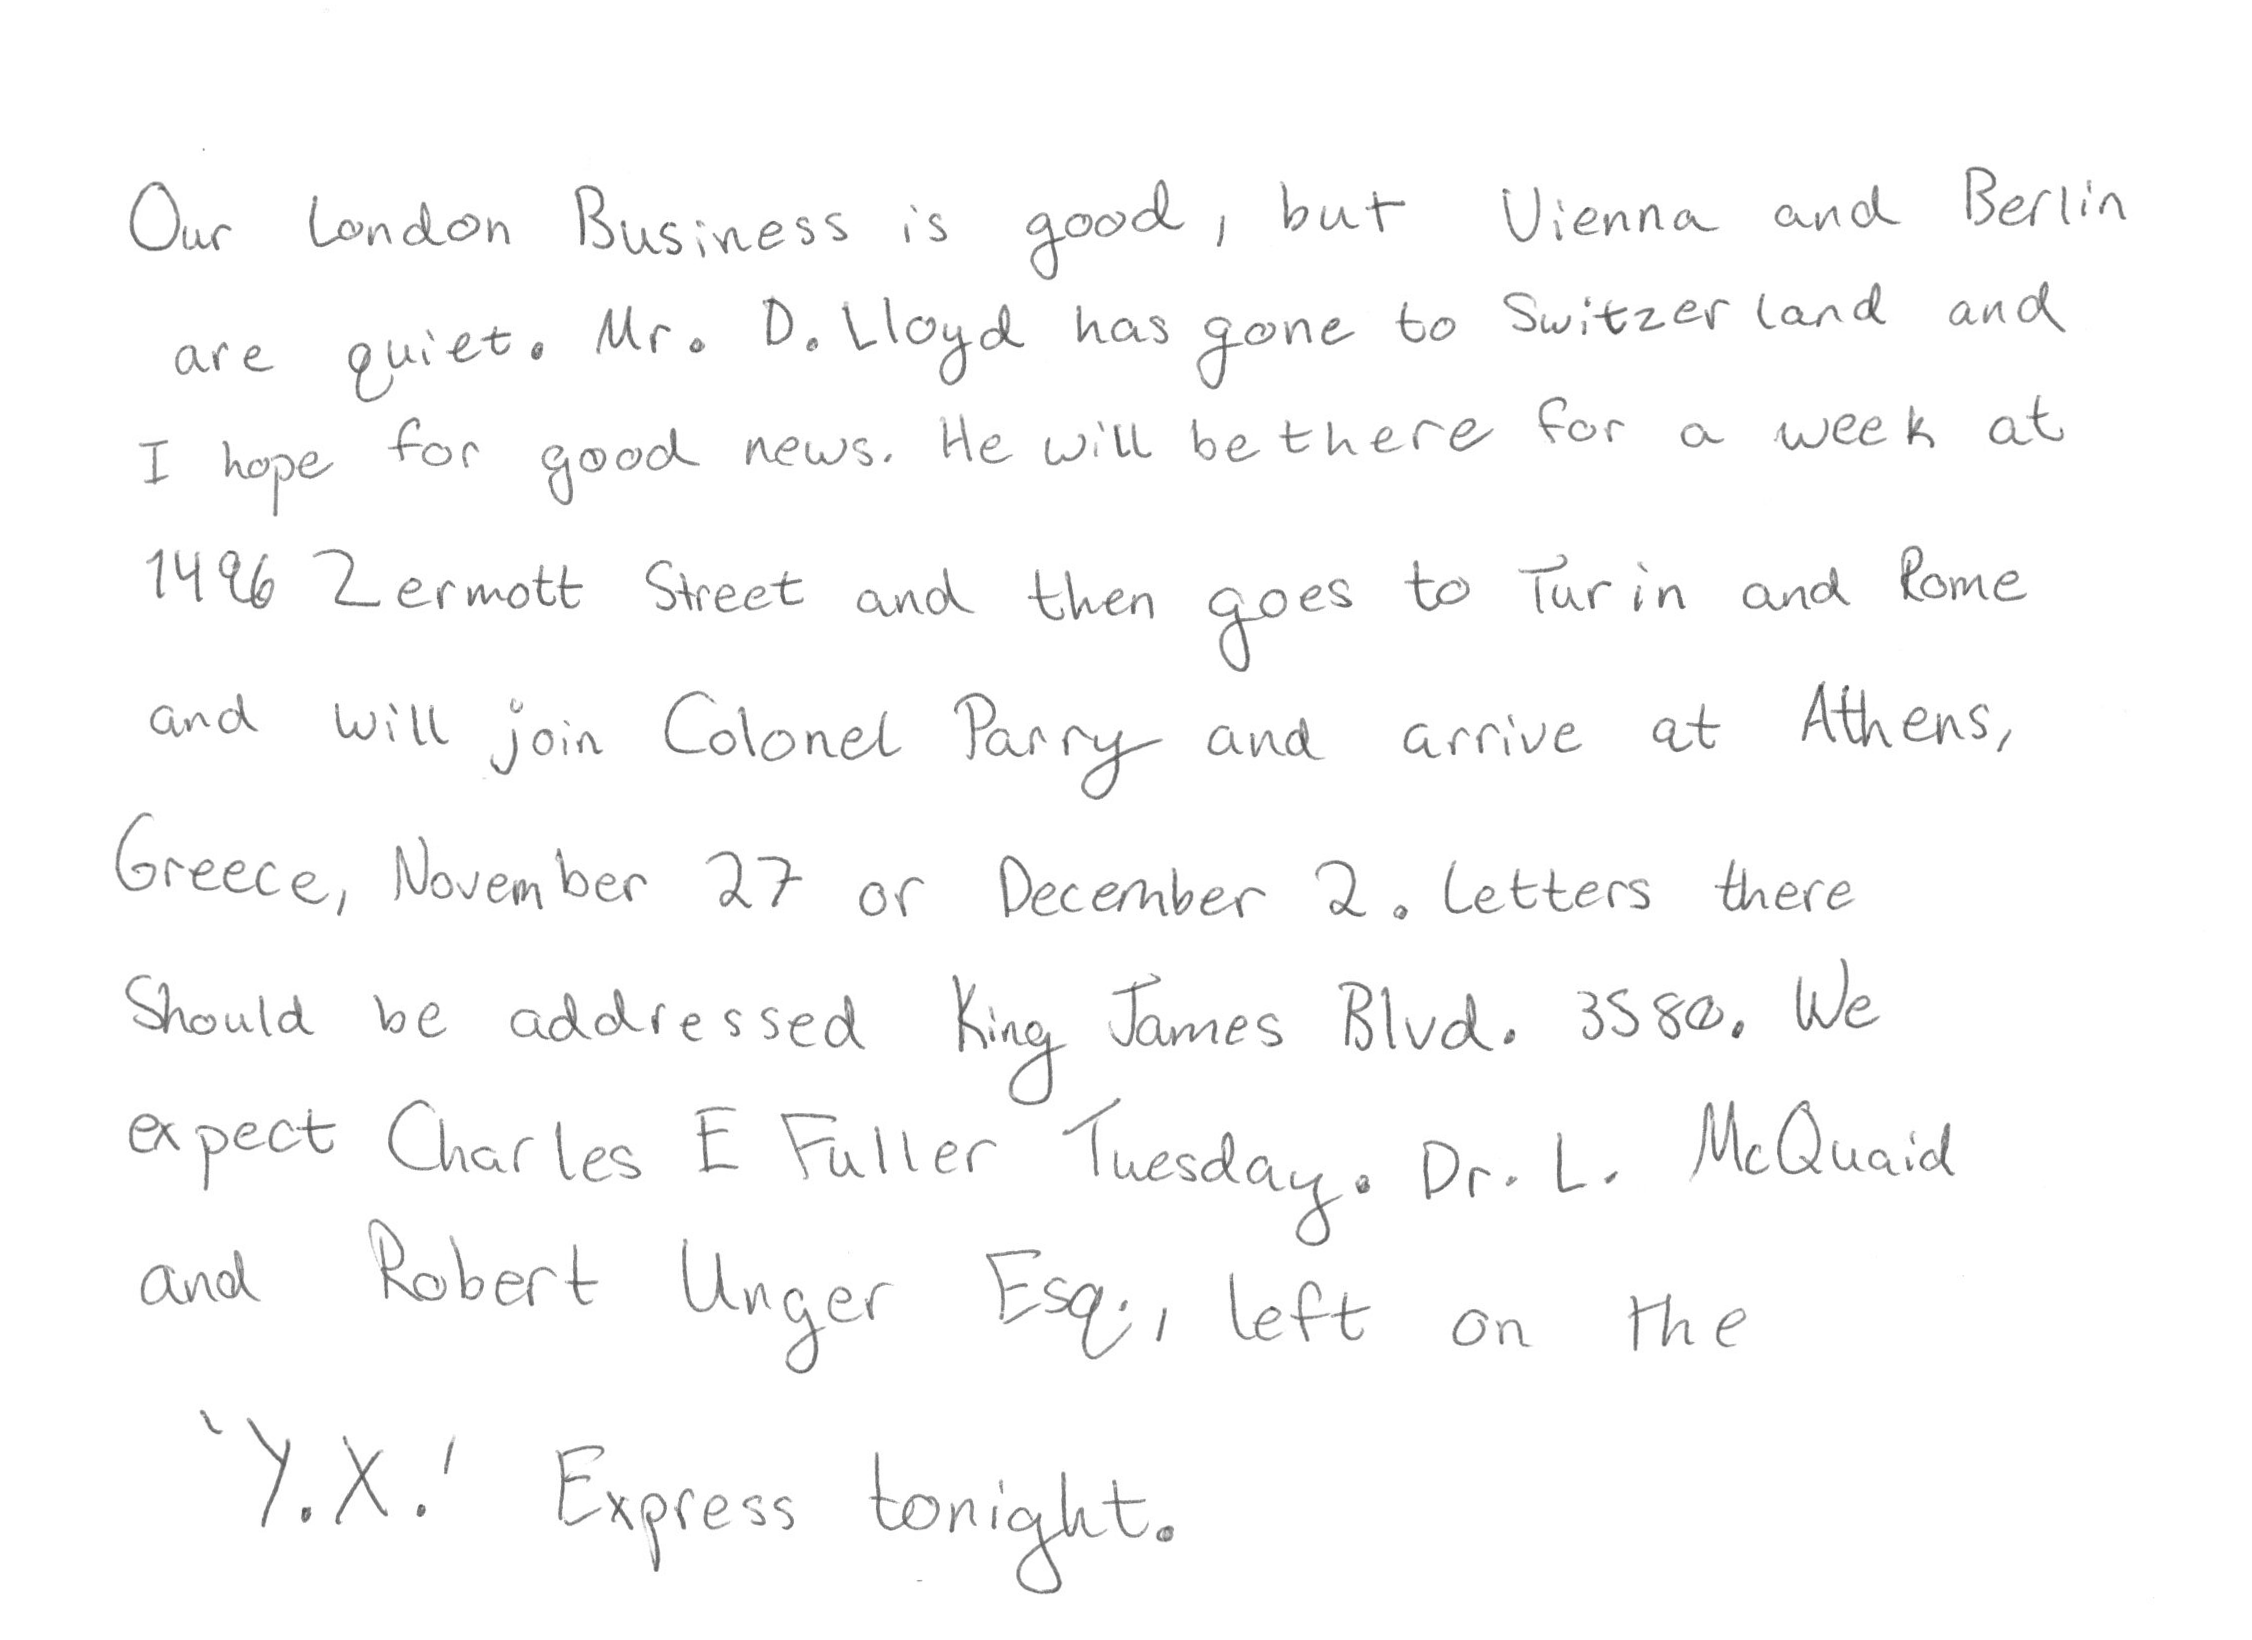 Our London Business is good, but Vienna and Berlin
are quiet. Mr. D. Lloyd has gone to Switzerland and
I hope for good news. He will be there for a week at
1496 Zermott Street and then goes to Turin and Rome
and will join Colonel Parry and arrive at Athens,
Greece, November 27 or December 2. Letters there
Should be addressed King James Blvd. 3580. We
expect Charles E Fuller Tuesday. Dr. L. McQuaid
and Robert Unger Esq., left on the
'Y.X.' Express tonight.